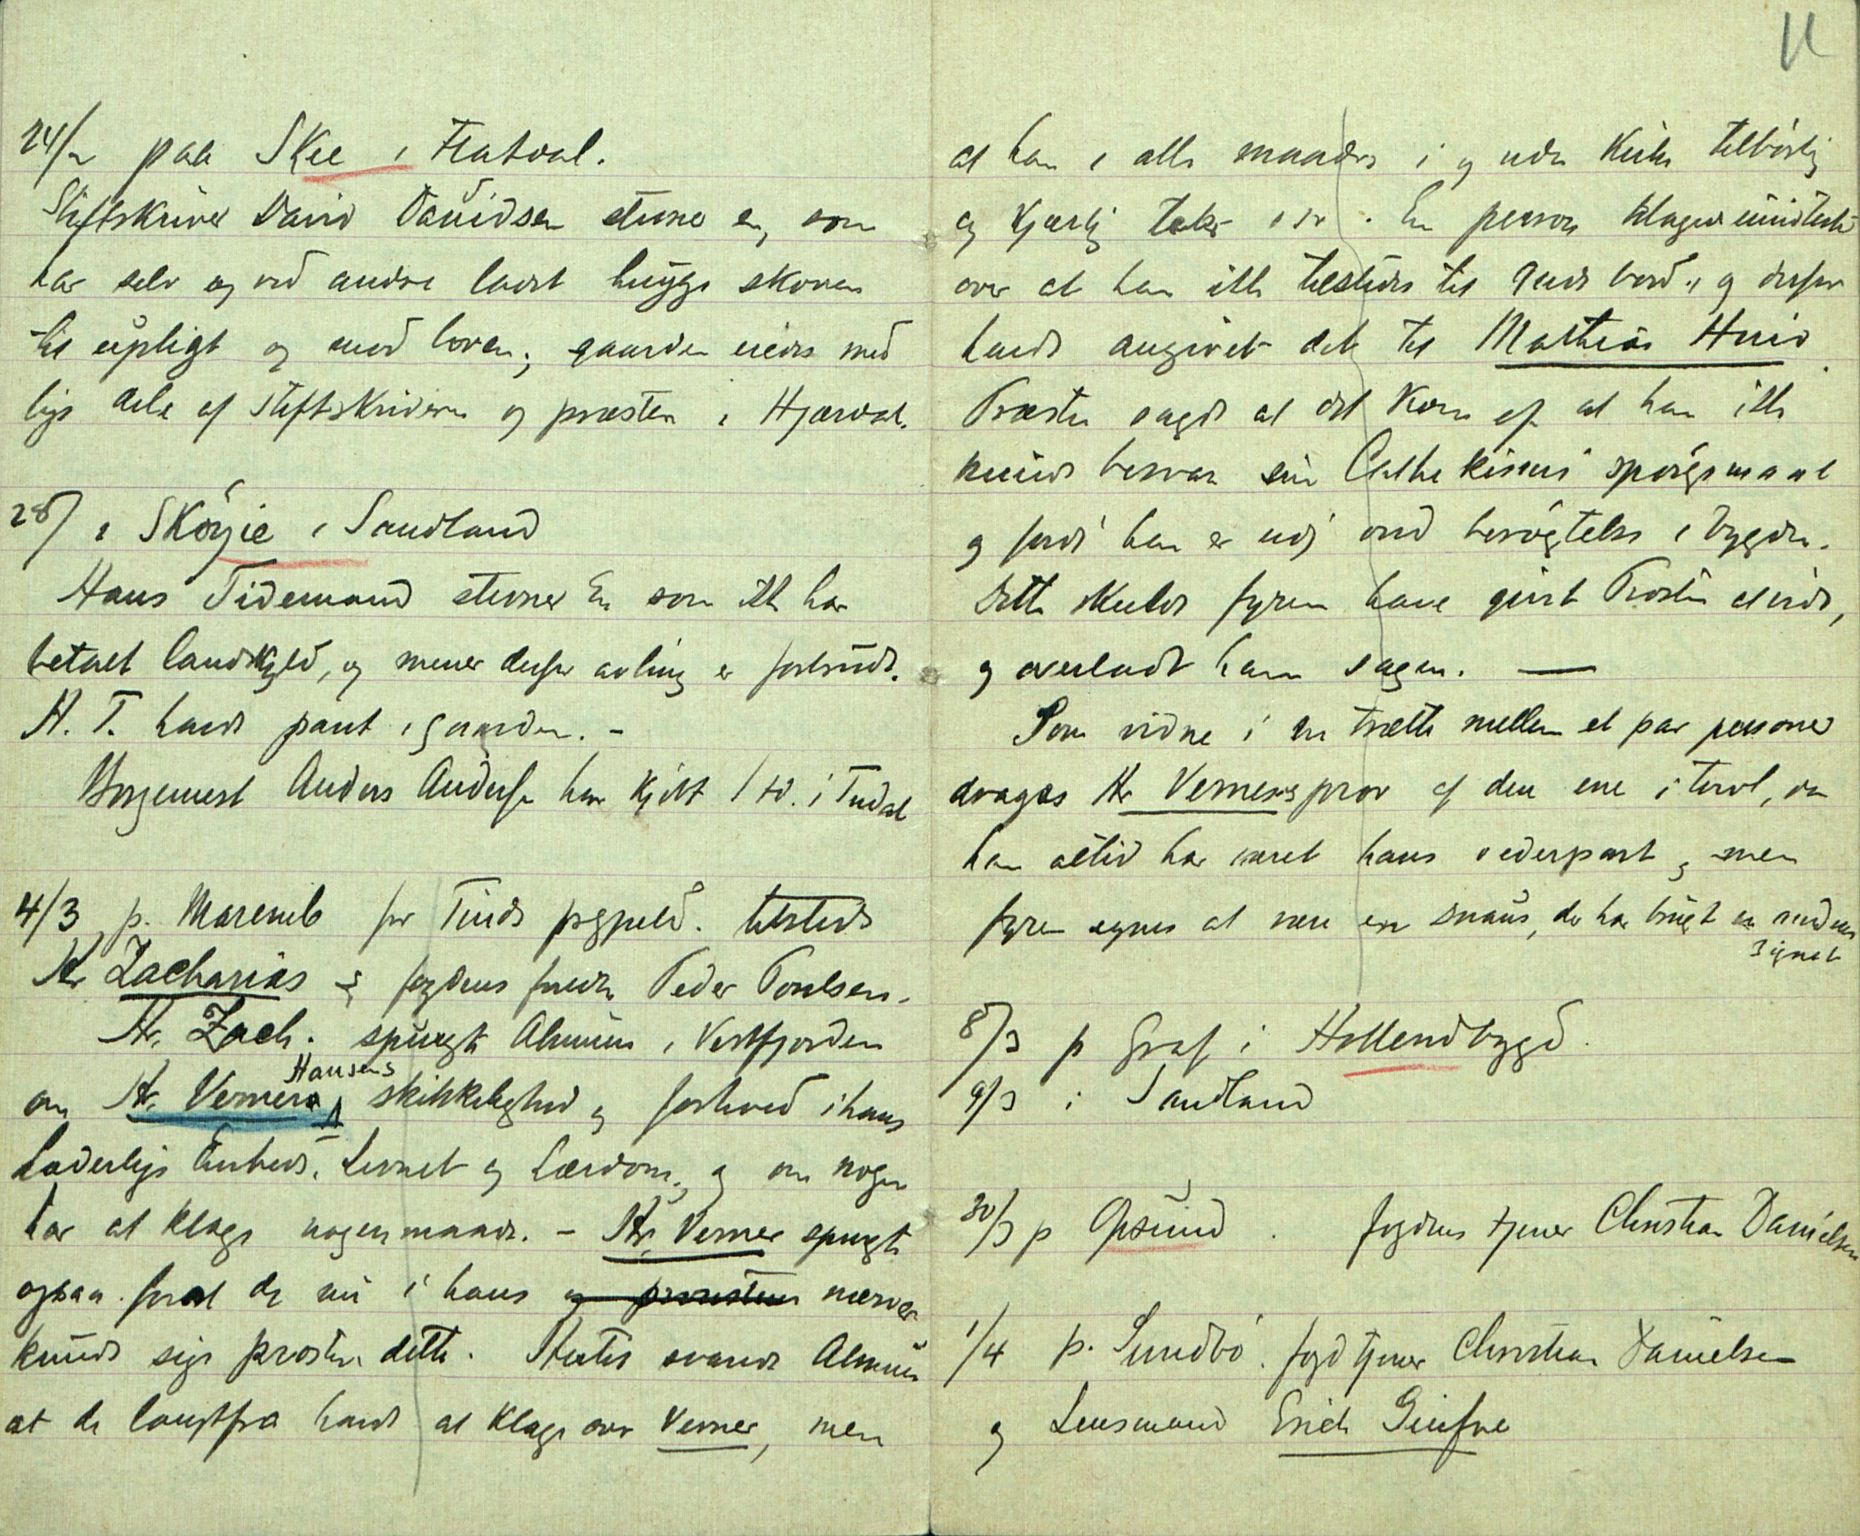 24/2 paa Skee i Flatdal.
Stiftskriver David Davidsen stevner en, som
har selv og ved andre ladet hugge skoven
til upligt og mod loven; gaarden eiedes med
lige dele af Stiftskriveren og præsten i Hjærdal.
28/ i Skøyie i Sandland
Hans Tidemand stevner En som ikke har
betalt landskyld, og mener derfor avling er forbrudt.
H. T. havde pant i gaarden. -
Borgemest Anders Anders har kjøbt 1 td. i Tudal
4/3 p. Marenib for Tinds prgjeld. tilstede
Hr Zacharias og fogdens fuldm Peder Poulsen.
Hr. Zach. spurgte Almuen i Vestfjorden
Hansens
om Hr. Verners skikkelighed og forhold i hans
Læderlige Embede, Levnet og Lærdom, og om nogen
har at klage nogenmaade. - Hr. Verner spurgte
ogsaa forat de nu i hans og provstens nærvær
kunde sige provsten dette. Hertil svarede Almuen
at de langtfra havde at klage over Verner, men
11
at han i alle maader i og uden Kirke tilbørlig
og kjærlig taler osv. En person klager imidlertid
over at han ikke tilstedes til Guds bord, og derfor
havde angivet det til Mathias Hvid.
Præsten sagde at det kom af at han ikke
kunde besvare sin Cathekismi spørgsmaal
og fordi han er udj ond berøgtelse i bygden.
Dette skulde fyren have givet Prosten tilkiende,
og overladt ham sagen. —
Som vidne i en trætte mellem et par personer
drages Hr Verners prov af den ene i tvivl, da
han altid har været hans vederpart, men
fyren synes at være en snaus, der har brugt en andens
signet
8/3 p Graf i Hollendbygd.
9/3 i Sandland
30/3 p Opsund. fogdens tjener Christian Danielsen
1/4 p. Sundbö. fogdtjener Christian Danielsen
og Lensmand Erich Giufne